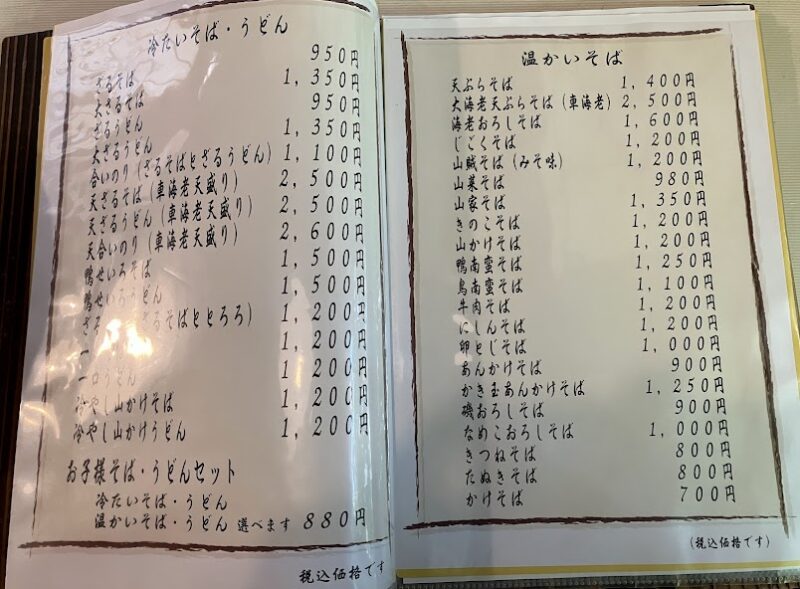 冷たいそば・うどん
ざるそば 950円
大ざるそば 1,350円
ざるうどん 950円
大ざるうどん 1,350円
合いのり(ざるそばとざるうどん) 1,100円
天ざるそば(車海老天盛り) 2,500円
天ざるうどん(車海老天盛り) 2,500円
天合いのり(車海老天盛り) 2,600円
鴨せいろそば 1,500円
鴨せいろうどん 1,500円
ざるそばととろろ) 1,200円
一 1,200円
一口うどん 1,200円
冷やし山かけそば 1,200円
冷やし山かけうどん 1,200円
お子様そば・うどんセット
冷たいそば・うどん
温かいそば・うどん 選べます 880円
税込価格です
温かいそば
天ぷらそば 1,400円
大海老天ぷらそば(車海老) 2,500円
海老おろしそば 1,600円
じごくそば 1,200円
山賊そば(みそ味) 1,200円
山菜そば 980円
山家そば 1,350円
きのこそば 1,200円
山かけそば 1,200円
鴨南蛮そば 1,250円
鳥南蛮そば 1,100円
牛肉そば 1,200円
にしんそば 1,200円
卵とじそば 1,000円
あんかけそば 900円
かき玉あんかけそば 1,250円
磯おろしそば 900円
なめこおろしそば 1,000円
きつねそば 800円
たぬきそば 800円
かけそば 700円
(税込価格です)